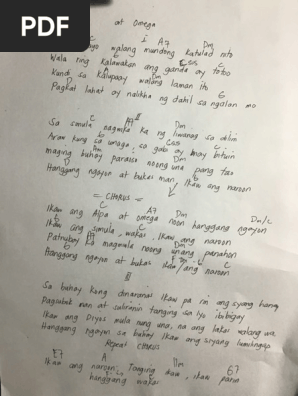 PDF
at Omega
C i A7 Dm
walang mundong katulad nito
Wala ring kalawakan ang ganda ay totoo
Kundi sa kalupaay walang laman ito
Pagkat lahat ay nalikha ng dahil sa ngalan mo
C A7 Dm
Sa simula nagmula ka ng liwanag sa dilim
Araw kung sa umaga, sa gabi ay may bituin
Dm C
maging buhay paraiso noong una pang tao
Hanggang ngayon at bukas man, Ikaw ang naroon
= CHORUS =
C A7 Dm Dm/C
Ikaw ang Alpa at omega noon hanggang ngayon
Ikaw ang simula, wakas Ikaw ang naroon
Patnubay ka magmula noong unang panahon
Hanggang ngayon at bukas Ikaw ang naroon
II
Sa buhay kong dinaranas Ikaw pa rin ang siyang
Pagsubok man at suliranin tanging sa Iyo ibibigay
Ikaw ang Diyos mula nung una, na ang lakas walang
Hanggang ngayon sa buhay Ikaw ang siyang
Repeat CHORUS
E7 A Dm G7
Ikaw ang naroon, Tanging ikaw, ikaw parin
hanggang wakas